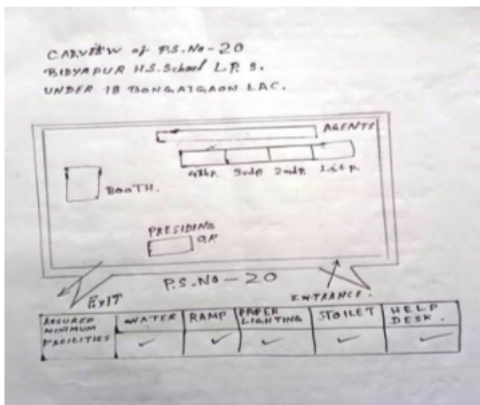 CAD.VIEW of P.S.No-20
BIDYAPUR H.S.School L.P.S.
UNDER 18 BONGAIGAON LAC.
AGENTS
4th p. 3rd p 2nd p. 1st p.
BOOTH.
PRESIDING
OR
P.S.No-20
EXIT
ENTRANCE.
ASSURED MINIMUM FACILITIES
WATER
RAMP
PROPER LIGHTING
STOILET
HELP DESK.